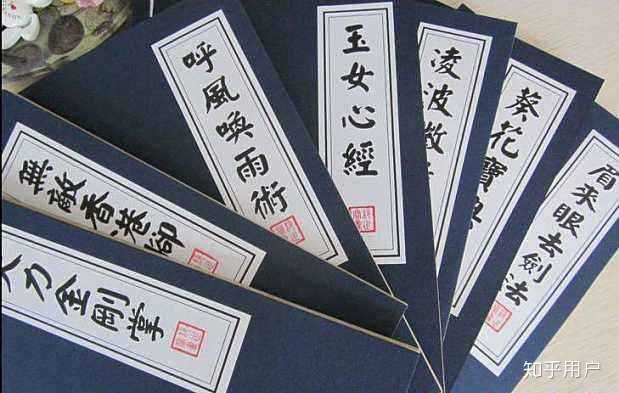 呼風喚雨術
玉女心經
凌波微步
葵花寶典
眉來眼去劍法
無敵香港脚
大力金剛掌
知乎用户